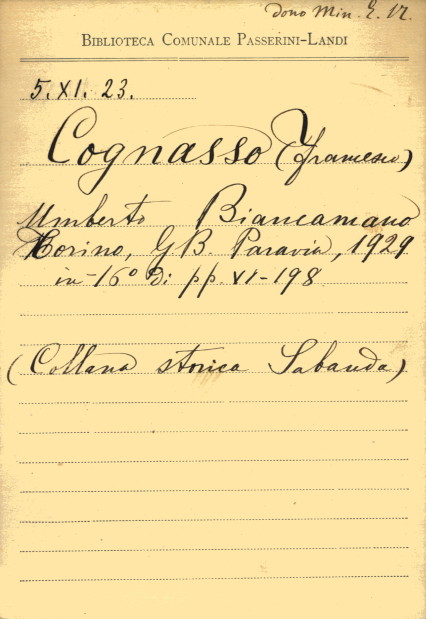 dono Min. E. N.
BIBLIOTECA COMUNALE PASSERINI-LANDI
5.XI. 23.
Cognasso (Francesco)
Umberto Biancamano
Torino, G B Paravia, 1929
in-16° di pp. VI-198
(Collana storica Sabauda)